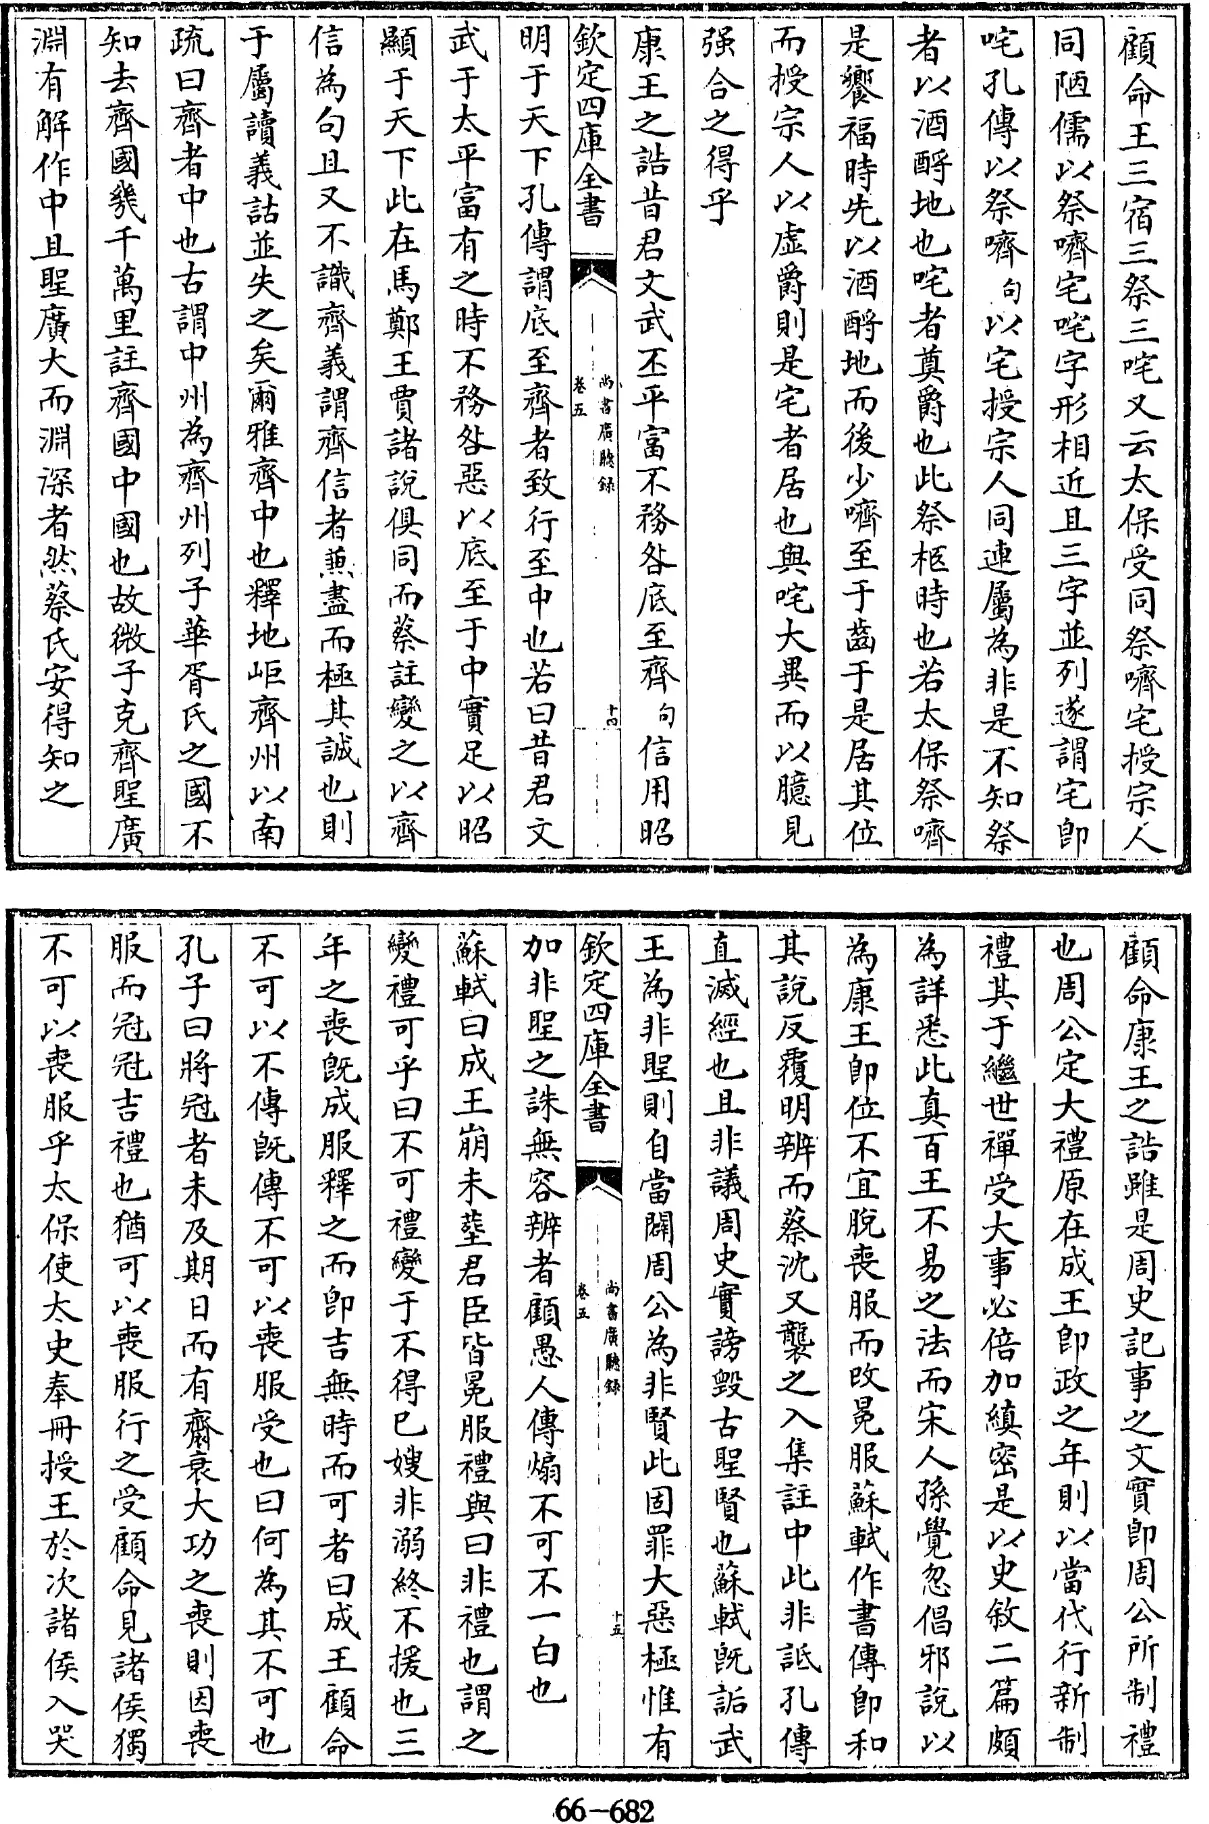 顧命王三宿三祭三咤又云太保受同祭嚌宅授宗人
同陋儒以祭嚌宅咤字形相近且三字並列遂謂宅即
咤孔傳以祭嚌句以宅授宗人同連屬為非是不知祭
者以酒酹地也咤者奠爵也此祭柩時也若太保祭嚌
是饗福時先以酒酹地而後少嚌至于齒于是居其位
而授宗人以虛爵則是宅者居也與咤大異而以臆見
强合之得乎
康王之誥昔君文武丕平富不務咎底至齊句信用昭
欽定四庫全書
尚書廣聽録
卷五
十四
明于天下孔傳謂底至齊者致行至中也若曰昔君文
武于太平富有之時不務咎惡以底至于中實足以昭
顯于天下此在馬鄭王賈諸說俱同而蔡註變之以齊
信為句且又不識齊義謂齊信者兼盡而極其誠也則
于屬讀義詁並失之矣爾雅齊中也釋地岠齊州以南
疏曰齊者中也古謂中州為齊州列子華胥氏之國不
知去齊國幾千萬里註齊國中國也故微子克齊聖廣
淵有解作中且聖廣大而淵深者然蔡氏安得知之
顧命康王之誥雖是周史記事之文實即周公所制禮
也周公定大禮原在成王即政之年則以當代行新制
禮其于繼世禪受大事必倍加縝密是以史敘二篇頗
為詳悉此真百王不易之法而宋人孫覺忽倡邪說以
為康王即位不宜脫喪服而改冕服蘇軾作書傳即和
其說反覆明辨而蔡沈又襲之入集註中此非詆孔傳
直滅經也且非議周史實謗毀古聖賢也蘇軾旣詬武
王為非聖則自當闢周公為非賢此固罪大惡極惟有
欽定四庫全書
尚書廣聽録
卷五
十五
加非聖之誅無容辨者顧愚人傳煽不可不一白也
蘇軾曰成王崩未葬君臣皆冕服禮與曰非禮也謂之
變禮可乎曰不可禮變于不得已嫂非溺終不援也三
年之喪旣成服釋之而即吉無時而可者曰成王顧命
不可以不傳旣傳不可以喪服受也曰何為其不可也
孔子曰將冠者未及期日而有齋衰大功之喪則因喪
服而冠冠吉禮也猶可以喪服行之受顧命見諸侯獨
不可以喪服乎太保使太史奉冊授王於次諸侯入哭
66-682